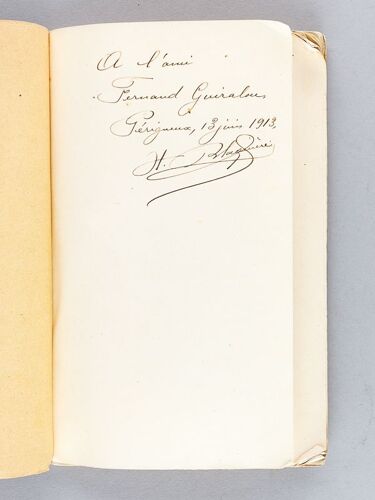 A l'ami
Fernand Guiralou
Périgueux, 13 juin 1913,
H.